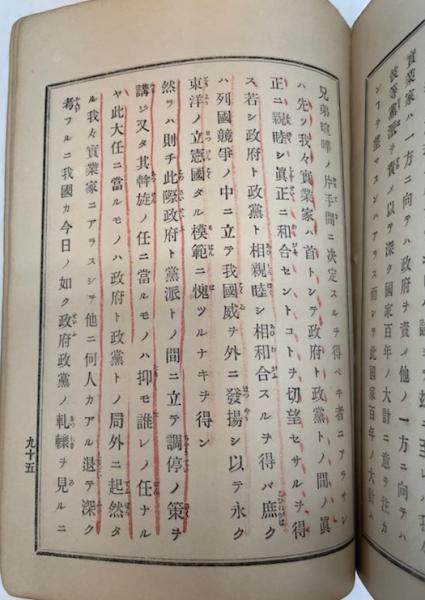 實業家ハ一方ニ向テハ政府ヲ責メ他ノ一方ニ向テハ
彼等黨派ヲ責メ以テ深ク國家百年ノ大計ニ意ヲ注カ
シコヲ
スンハアラス而シテ此國家百年ノ大計ハ
兄弟喧嘩ノ片手間ニ決定スルヲ得ベキ者ニアラサレ
ハ先ツ我々實業家ハ首トシテ政府ト政黨トノ間ノ眞
正ニ親睦シ眞正ニ和合セントコトヲ切望セサルヲ得
ス若シ政府ト政黨ト相親睦シ相和合スルヲ得バ庶ク
ハ列國競爭ノ中ニ立テ我國威ヲ外ニ發揚シ以テ永ク
東洋ノ立憲國タル模範ニ愧ツルナキヲ得ン
然ラハ則チ此際政府ト黨派トノ間ニ立テ調停ノ策ヲ
講シ又タ其斡旋ノ任ニ當ルモノハ抑モ誰レノ任ナル
ヤ此大任ニ當ルモノハ政府ト政黨トノ局外ニ起然タ
ル我々實業家ニアラスシテ他ニ何人カアル退テ深ク
考フルニ我國カ今日ノ如ク政府政黨ノ軋轢ヲ見ルニ
九十五